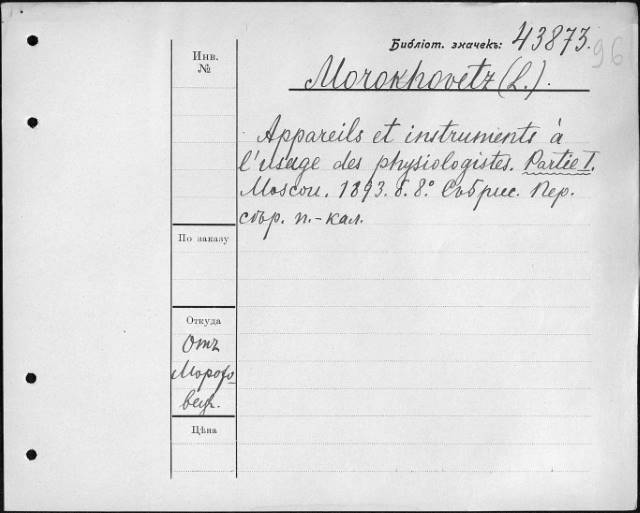 Библіот. значекъ: 43873.
96
Инв.
№
Morokhovetz (L.).
Appareils et instruments à
l'usage des physiologistes. Partie I.
Moscou. 1893. 8. 8.° Съ рис. Пер.
сбр. п.-кал.
По заказу
Откуда
Отъ
Морохо
вец.
Цѣна